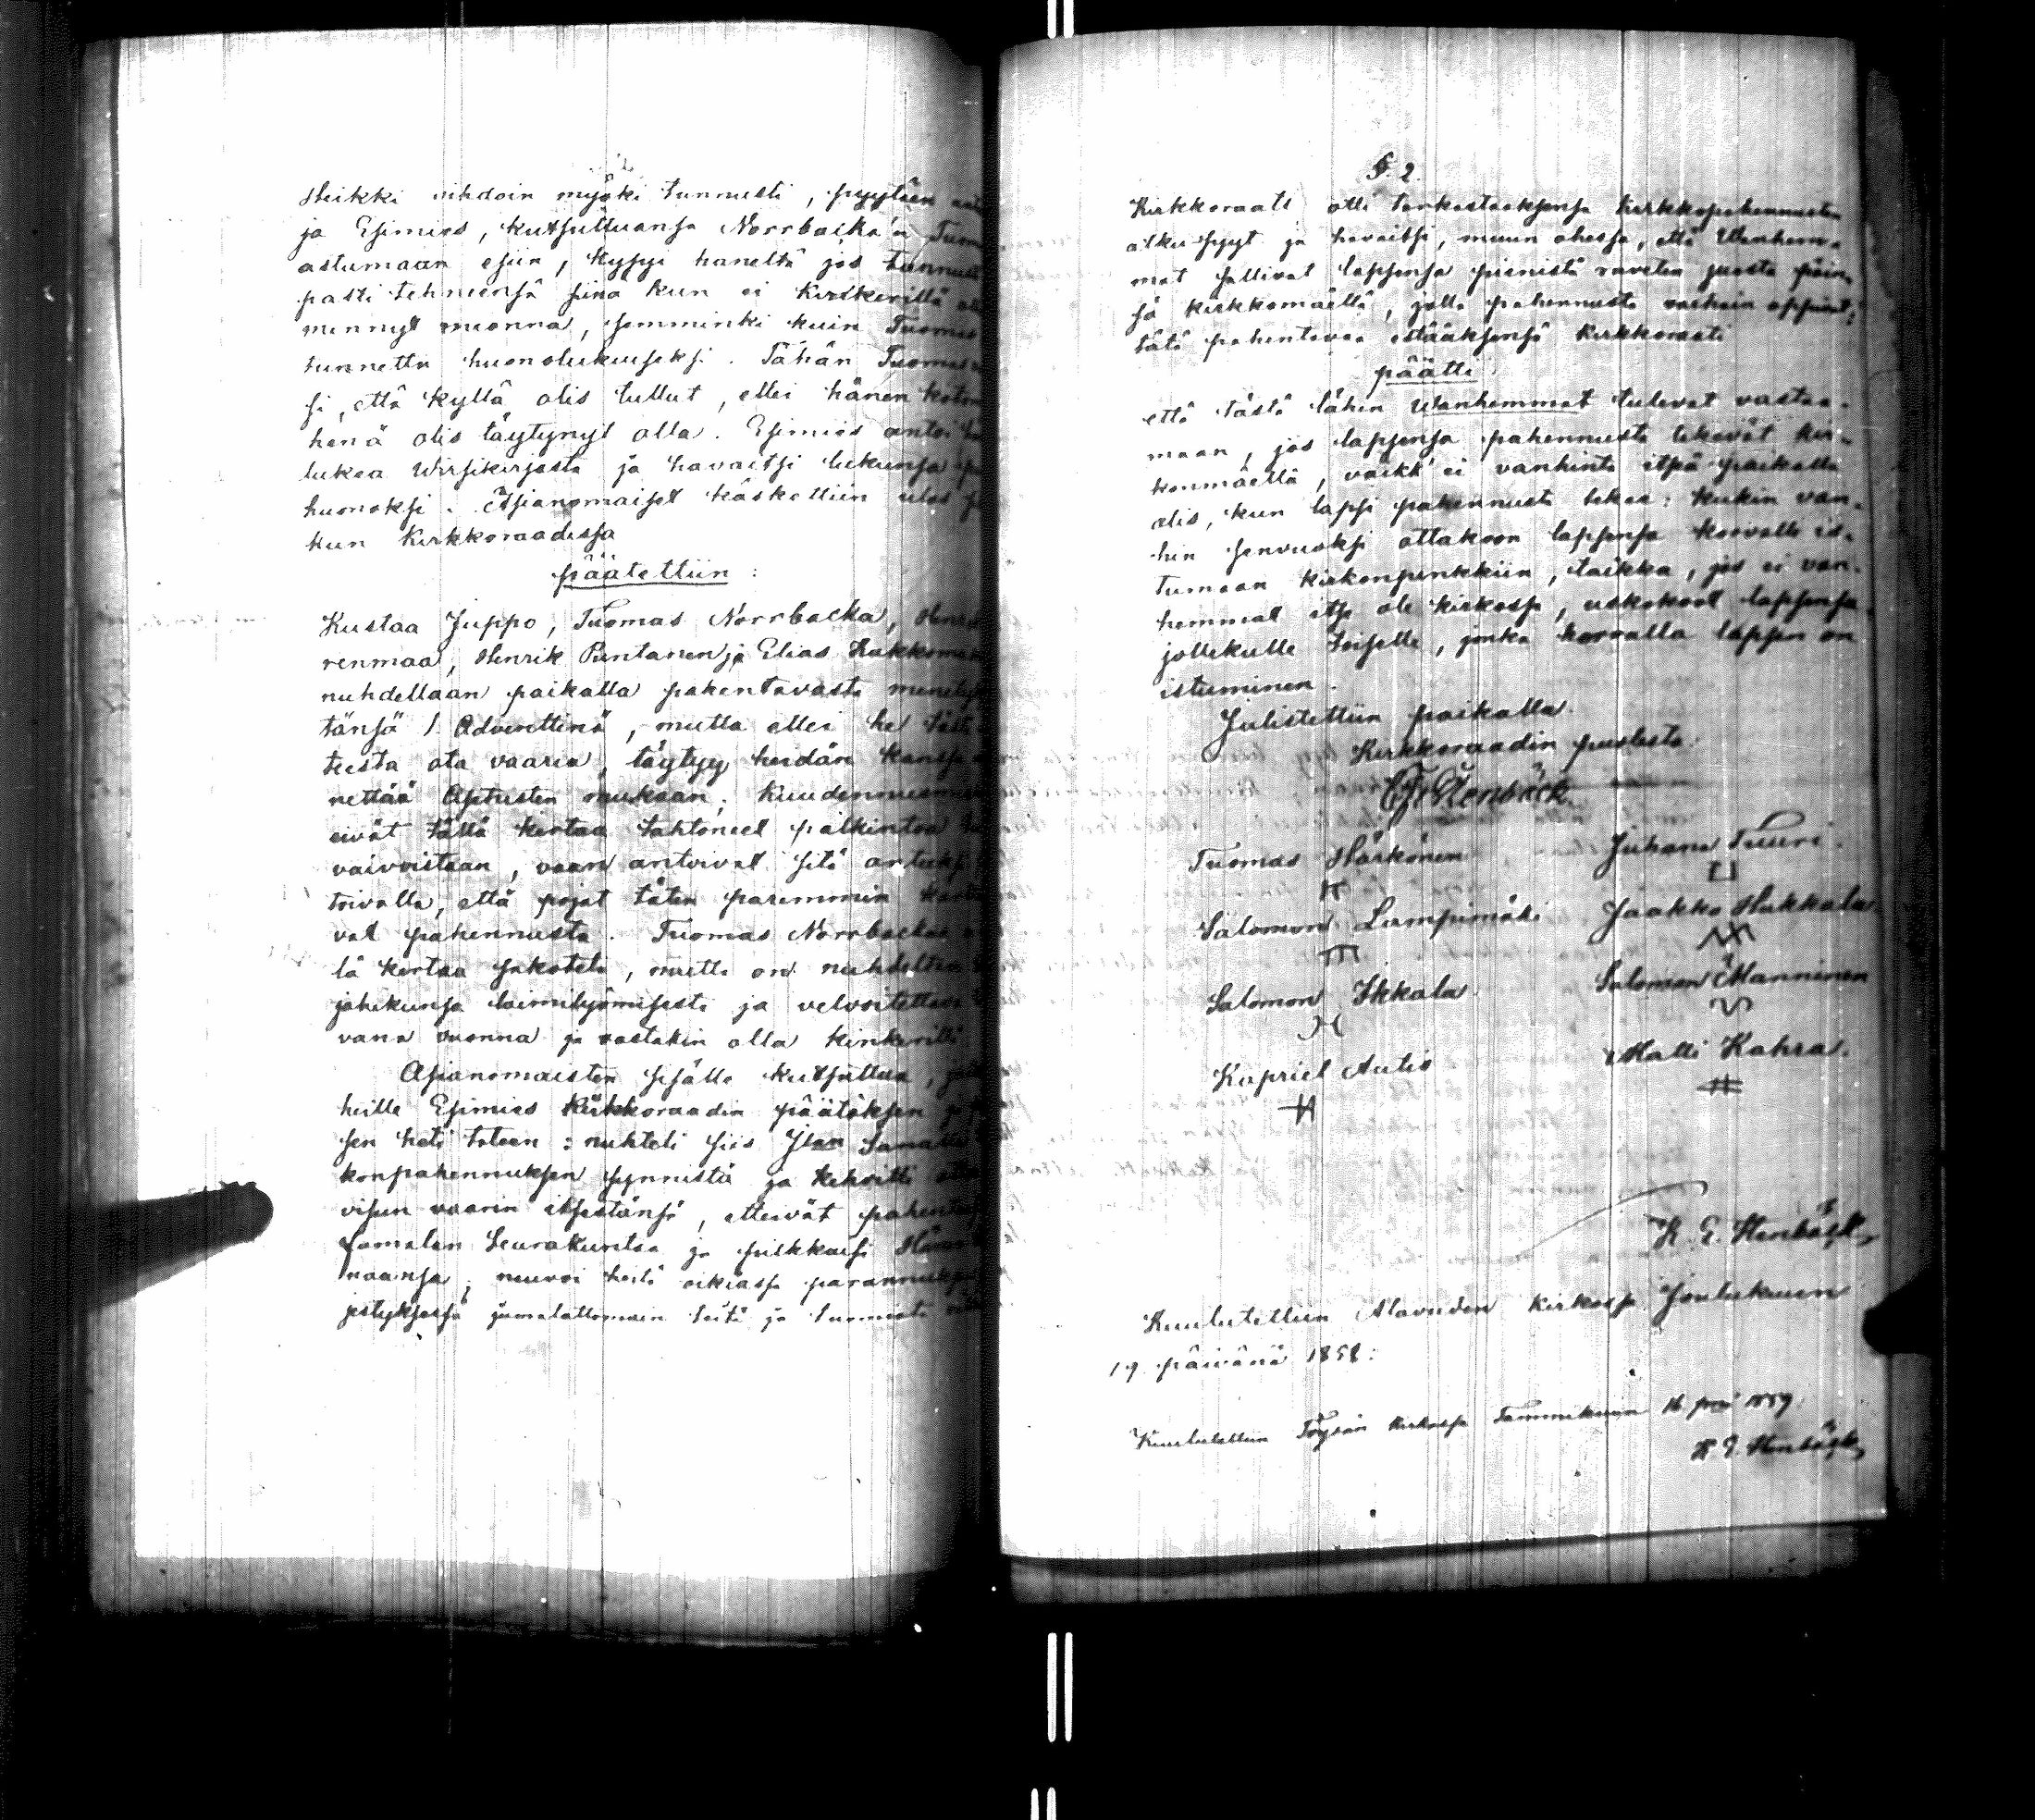 Heikki vihdoin myöki tunnusti, pyytäen
ja Esimies, kutsuttuansa Norrbacka'n Tuom
astumaan esiin, kysyi häneltä jos tunnusti
pasti tehneensä siinä kun ei Kinkerillä
mennyt vuonna, semminki kuin Tuomas
tunnettu huonolukuiseksi. Tähän Tuomas
si, että kyllä olis tullut, ellei hänen koton
henä olis täytynyt olla. Esimies antoi
lukea Wirsikirjasta ja havaitsi lukunsa
huonoksi. Asianomaiset käskettiin ulos
kun Kirkkoraadissa
päätettiin:
Kustaa Juppo, Tuomas Norrbacka,
renmaa, Henrik Puntanen ja Elias Hakkoma
nuhdellaan paikalla pahentavasta menetyk
tänsä 1 Adventtinä, mutta ellei he tästä
teesta ota vaaria, täytyy heidän kanssa
nettää Asetusten mukaan; Kuudennusmie
eivät tällä kertaa tahtoneet palkintoa
vaivoistaan, vaan antoivat sitä anteeksi
toivolla, että pojat täten paremmin kartta
vat pahennusta. Tuomas Norrbackaa
lä kertaa sakoteta, mutta on nuhdeltava
jahikunsa laimilyömisestä ja velvoitettava
vana vuonna ja vastakin olla kinkerillä
Asianomaisten sisälle kutsuttua,
heille Esimies Kirkkoraadin päätöksen
sen heti toteen: nuhteli siis
konpahennuksen synnistä ja kehoitti
visun vaarin itsestänsä, etteivät pahenta
Jumalan Seurakuntaa ja pilkkaisi Hänen
naansa; neuvoi heitä oikiassa parannuksen
jestyksessä jumalattomain teitä ja luonnosta
§. 2.
Kirkkoraati otti tarkastaaksensa kirkkopahennusten
alkusyyt ja havaitsi, muun ohessa, että Wanhem-
mat sallivat lapsensa pienistä ruveten juosta päin-
sä kirkkomäellä, jolla pahennusta varhain oppivat;
tätä pahentavaa estääksensä Kirkkoraati
päätti
että tästä lähin Wanhemmat tulevat vastaa-
maan, jos lapsensa pahennusta tekevät kir-
konmäellä, vaikk' ei vanhinta itseä paikalla
olis, kun lapsi pahennusta tekee: kukin van-
hin senvuoksi ottakoon lapsensa korvalle is-
tumaan kirkonpenkkiin, taikka, jos ei van-
hemmat itse ole kirkossa, uskokoot lapsensa
jollekulle toiselle, jonka korvalla lapsen on
istuminen.
Julistettiin paikalla.
Kirkkoraadin puolesta:
Stenbäck
Tuomas Härkönen Juhana Tuuri.
Salomon Lampimäki Jaakko Hukkala
Salomon Ikkala Salomon Manninen
Kapriel Autio Matti Kahra.
K. E. Stenbäck
Kuulutettiin Alavuden kirkossa Joulukuun
19 päivänä 1858:
Kuulutettiin Töysän kirkossa Tammikuun 16 p:nä 1859
K. E. Stenbäck